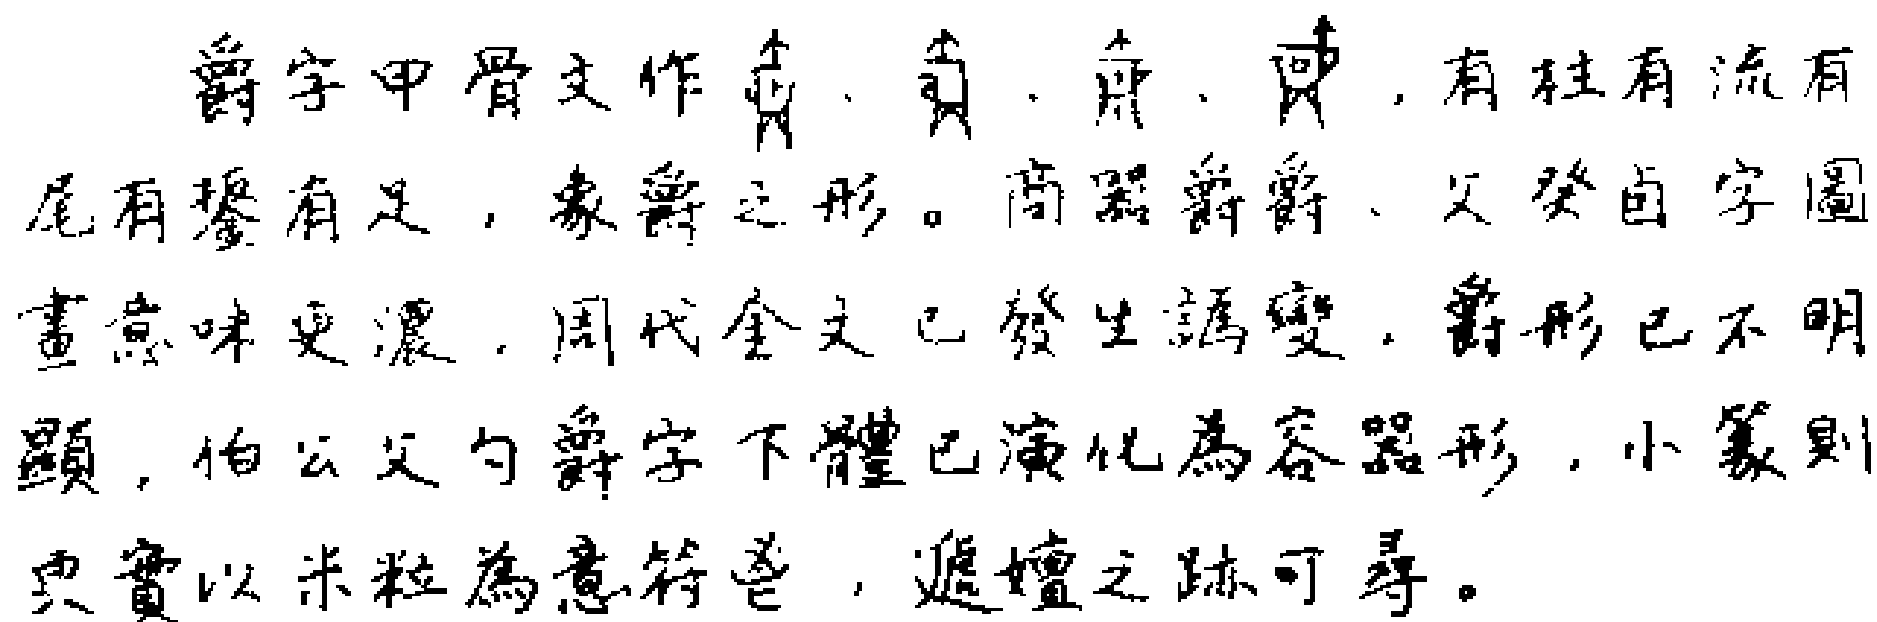 爵字甲骨文作、、、，有柱有流有
尾有鋬有足，象爵之形。商器爵爵、父癸卣字圖
畫意味更濃，周代金文已發生譌變，爵形已不明
顯，伯公父勺爵字下體已演化為容器形，小篆則
更實以米粒為意符鬯，遞嬗之跡可尋。